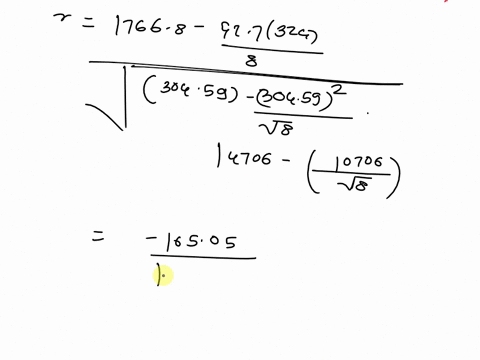 r = 1766.8 - 42.7(324)
8
√(304.59) - (304.59)²
√8
14706 - (10706
√8)
= -165.05
1.